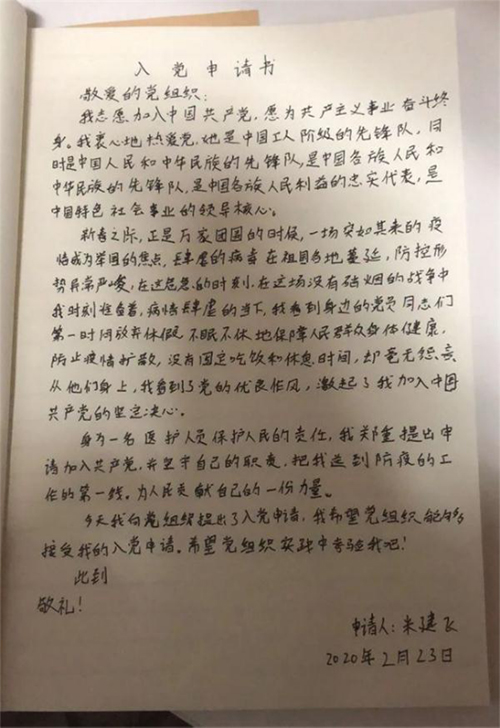 入党申请书
敬爱的党组织:
我志愿加入中国共产党,愿为共产主义事业奋斗终
身。我衷心地热爱党,她是中国工人阶级的先锋队,同
时是中国人民和中华民族的先锋队,是中国各族人民和
中华民族的先锋队,是中国各族人民利益的忠实代表,是
中国特色社会事业的领导核心。
新春之际,正是万家团圆的时候,一场突如其来的疫
情成为举国的焦点,肆虐的病毒在祖国各地蔓延,防控形
势异常严峻,在这危急的时刻,在这场没有硝烟的战争中
我时刻准备着,疫情肆虐的当下,我看到身边的党员同志们
第一时间放弃休假,不眠不休地保障人民群众身体健康,
防止疫情扩散,没有固定吃饮和休息时间,却毫无怨言
从他们身上,我看到了党的优良作风,激起了我加入中国
共产党的坚定决心。
身为一名医护人员保护人民的责任,我郑重提出申
请加入共产党,并坚守自己的职责,把我送到防疫的工
作的第一线。为人民贡献自己的一份力量。
今天我向党组织提出了入党申请,我希望党组织能够
接受我的入党申请。希望党组织实践中考验我吧!
此到
敬礼!
申请人:朱建飞
2020年2月23日